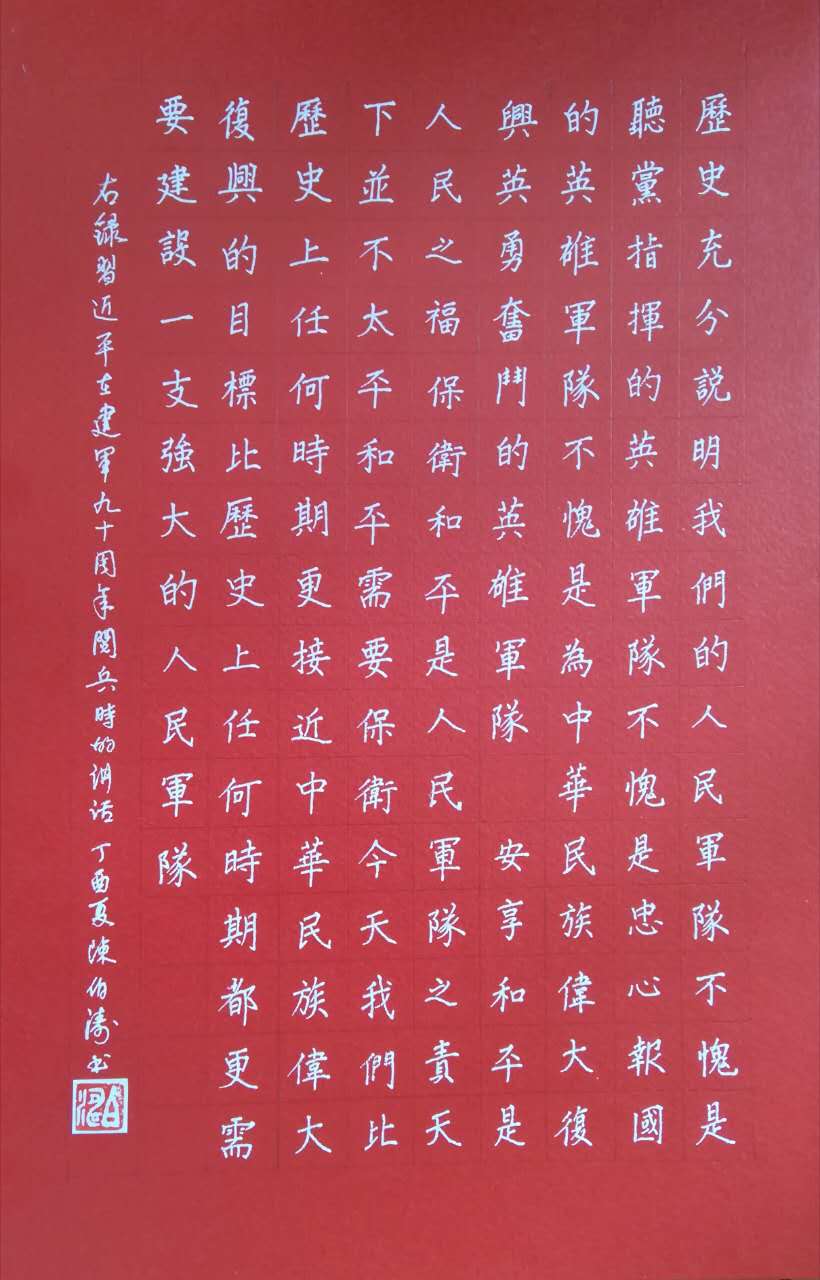 歷史充分説明我們的人民軍隊不愧是
聽黨指揮的英雄軍隊不愧是忠心報國
的英雄軍隊不愧是為中華民族偉大復
興英勇奮鬥的英雄軍隊 安享和平是
人民之福保衛和平是人民軍隊之責天
下並不太平和平需要保衛今天我們比
歷史上任何時期更接近中華民族偉大
復興的目標比歷史上任何時期都更需
要建設一支強大的人民軍隊
右録習近平在建軍九十周年閲兵時的讲话 丁酉夏陳伯濤书